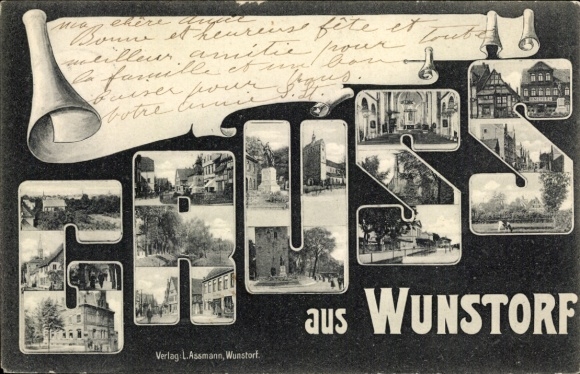 ma chère amie
Bonne et heureuse fête et toute
meilleur amitié pour
la famille et un bon
baiser pour vous
votre amie
GRUSS
aus WUNSTORF
Verlag: L. Assmann, Wunstorf.